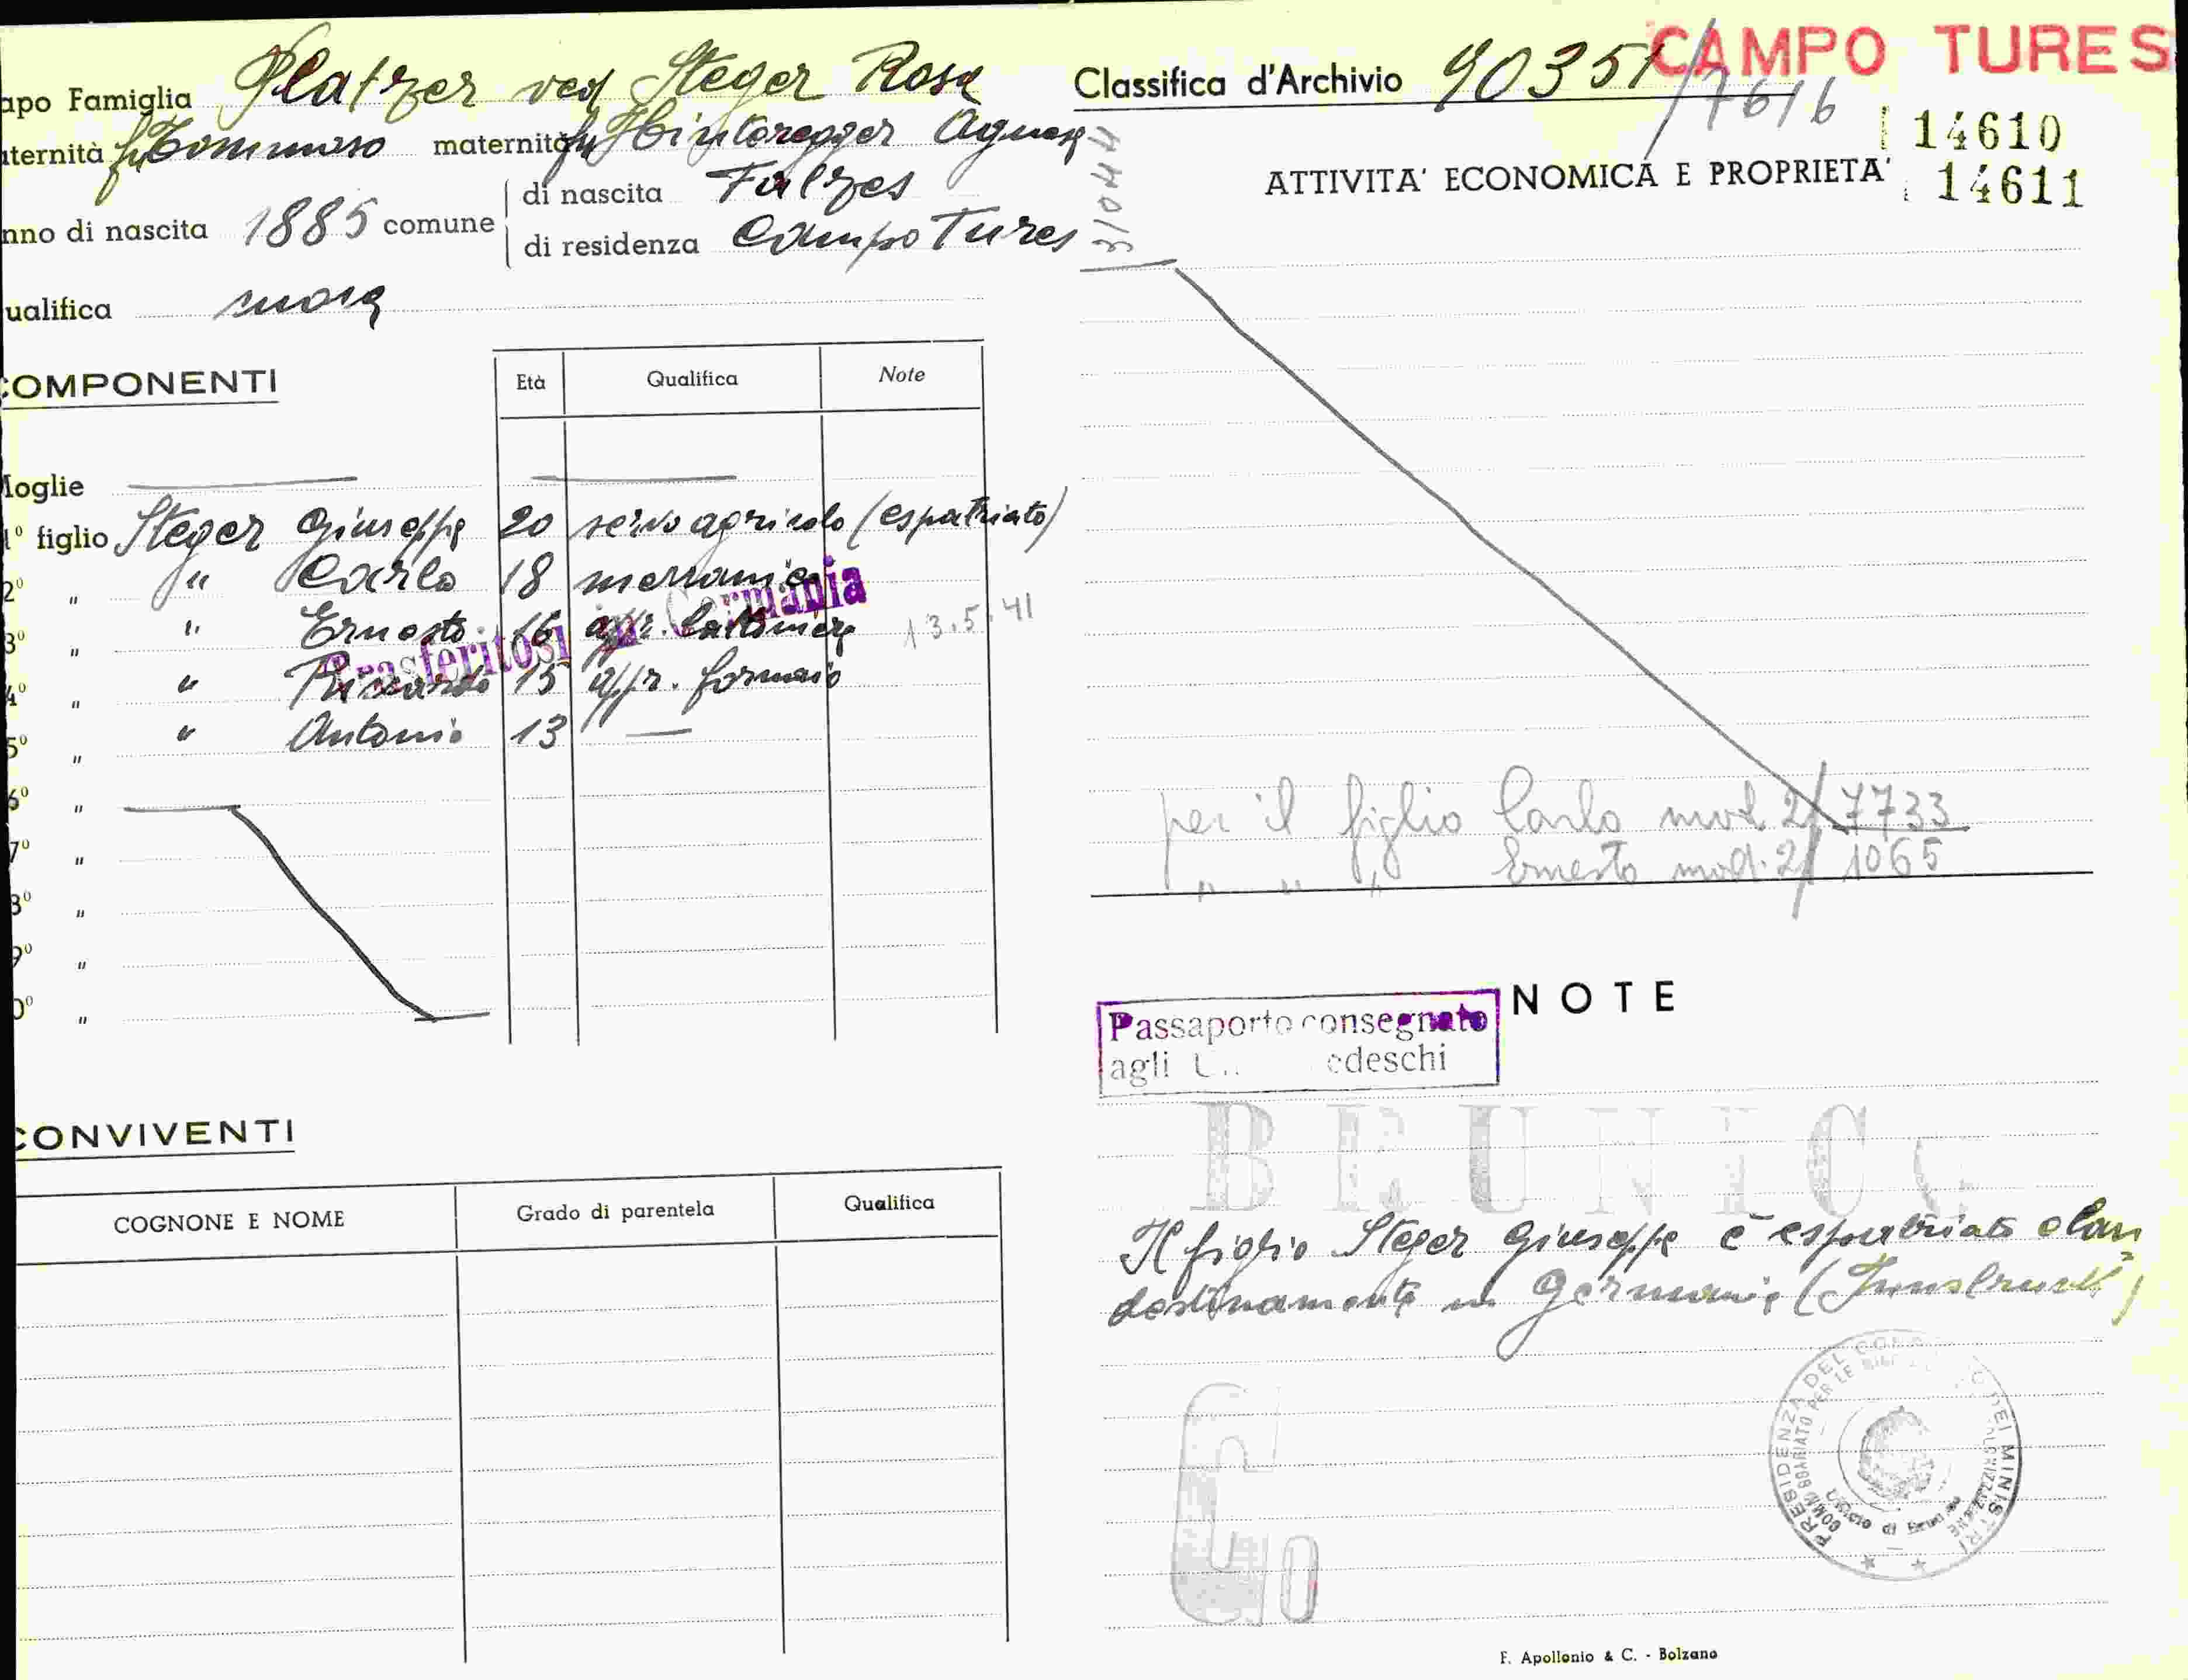 apo Famiglia Platzer ved Steger Rosa
aternità fu Tommaso maternità fu Hinteregger Agnese
nno di nascita 1885 comune
di nascita Falzes
di residenza Campo Tures
ualifica
COMPONENTI
Età Qualifica Note
Moglie
1° figlio Steger Giuseppe 20 servo agricolo (espatriato)
2° " " Carlo 18 meccanico
3° " " Ernesto 16 appr. lattoniere 13.5.41
Trasferitosi in Germania
4° " " Riccardo 15 appr. fornaio
5° " " Antonio 13 —
6° "
7° "
8° "
9° "
0° "
CONVIVENTI
COGNONE E NOME Grado di parentela Qualifica
Classifica d'Archivio 90351/7616
CAMPO TURES
14610
14611
31044
ATTIVITA' ECONOMICA E PROPRIETA'
per il figlio Carlo mod. 2/7733
" " " Ernesto mod. 2/1065
NOTE
Passaporto consegnato
agli tedeschi
BRUNICO
Il figlio Steger Giuseppe è espatriato clan
destinamente in Germania (Innsbruck)
PRESIDENZA DEL CONSIGLIO DEI MINISTRI
F. Apollonio & C. - Bolzano